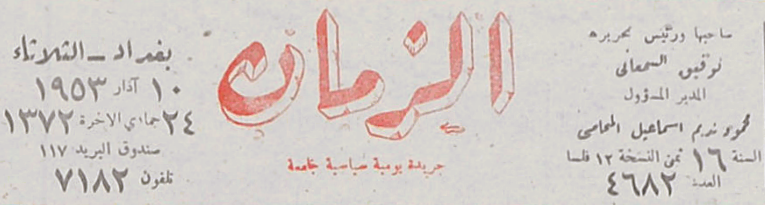 صاحبها ورئيس تحريره
توفيق السمعاني
المدير المسؤول
محمود نديم اسماعيل المحامي
السنة ١٦ ثمن النسخة ١٢ فلسا
العدد ٤٦٨٢
الزمان
جريدة يومية سياسية جامعة
بغداد - الثلاثاء
١٠ آذار ١٩٥٣
٢٤ جمادي الاخرة ١٣٧٢
صندوق البريد ١١٧
تلفون ٧١٨٢